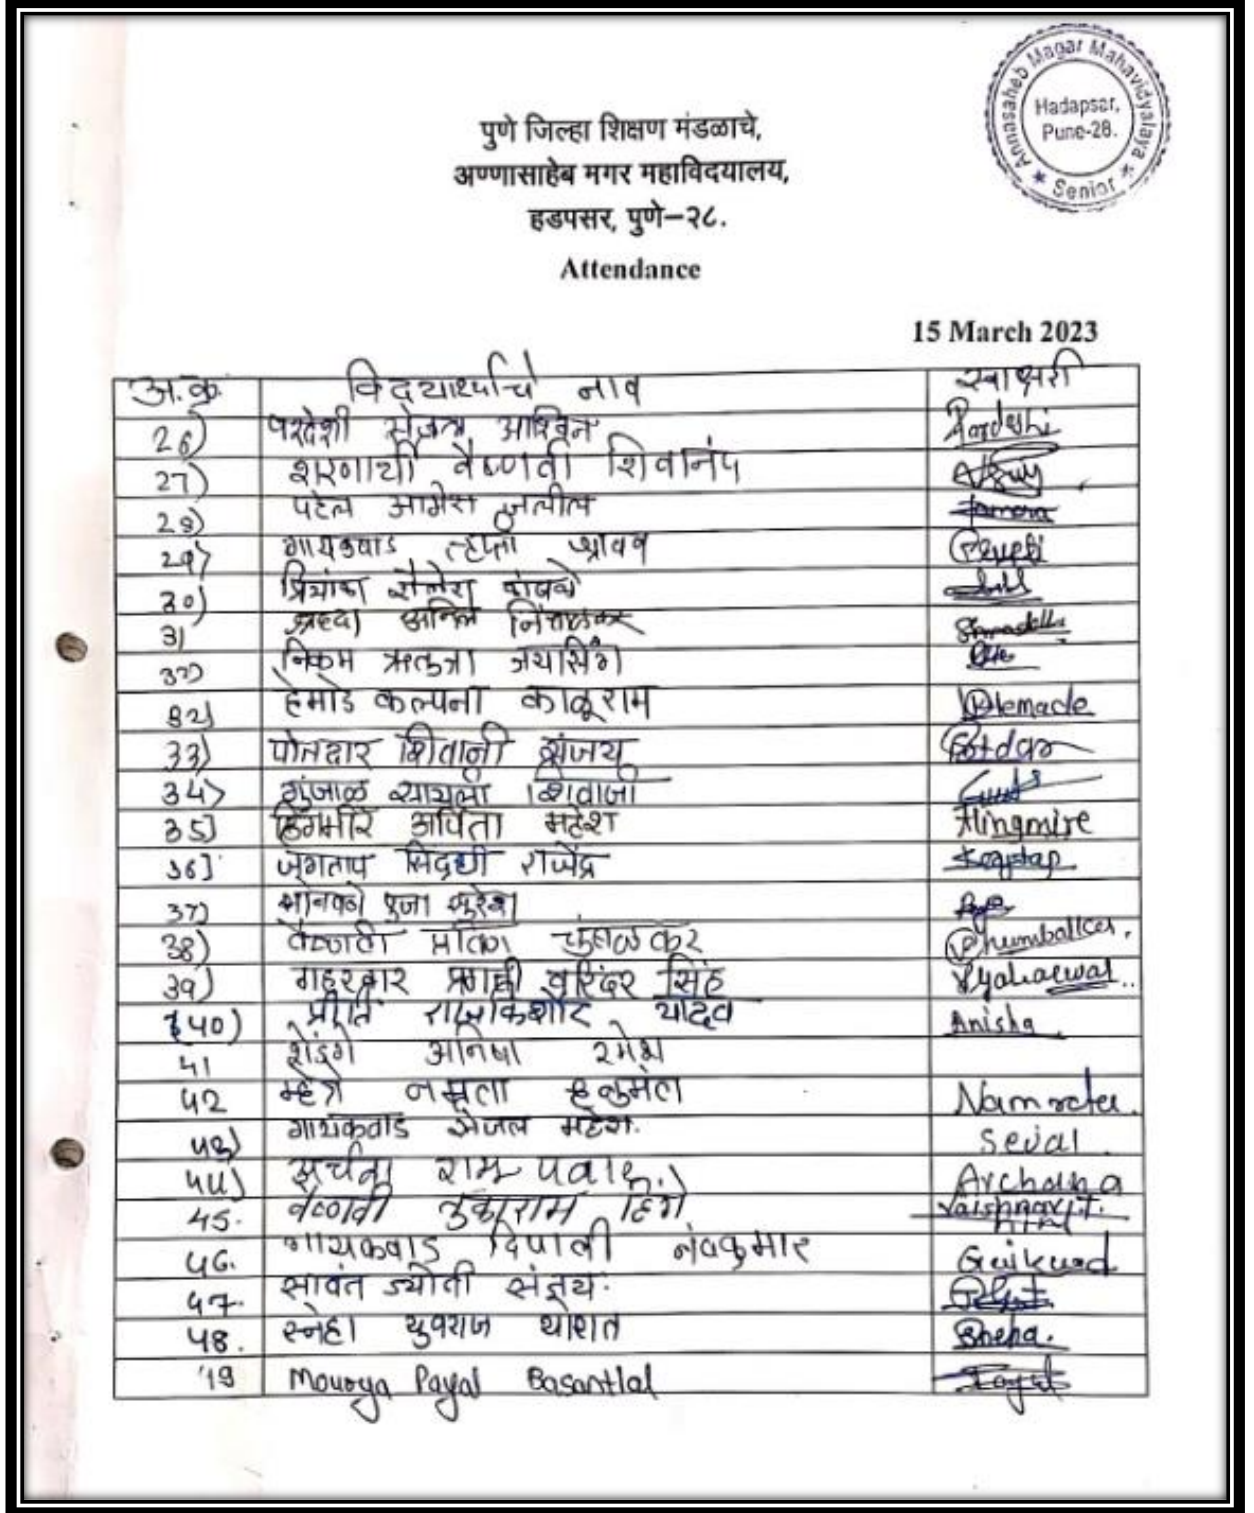 Annasaheb Magar Mahavidyalaya
Hadapsar,
Pune-28.
★ Senior ★
पुणे जिल्हा शिक्षण मंडळाचे,
अण्णासाहेब मगर महाविदयालय,
हडपसर, पुणे–२८.
Attendance
15 March 2023
अ.क्र. विद्यार्थ्याचे नाव स्वाक्षरी
26) परदेशी आश्विन Pardeshi
27) वैष्णवी शिवानंद
28) पटेल जलील
29) गायकवाड श्रावण
30) प्रियांका शैलेश कांबळे
31 श्रध्दा अनिल निंबाळकर Shraddha
32) निकम ऋतुजा जयसिंग
32) हेमाडे कल्पना काळूराम Hemade
33) पोतदार शिवानी संजय Potdar
34) गुंजाळ सायली शिवाजी
35] हिंगमीरे अर्पिता महेश Hingmire
36] जगताप सिद्धी राजेंद्र Jagtap
37) पुजा सुरेश
38) वैष्णवी चुंबळकर Chumbalkar.
39) गहरवार सिंह Gaharwar..
40) प्रीति राजकिशोर यादव Anisha
41 शेंडगे अनिषा रमेश
42 म्हेत्रे नम्रता हनुमंत Namrata.
43) गायकवाड सेजल महेश. Sejal.
44) अर्चना राम पवार. Archana
45. वैष्णवी तुकाराम हिंगे Vaishnavi.T.
46. गायकवाड दिपाली नंदकुमार Gaikwad
47. सावंत ज्योती संजय.
48. स्नेहा युवराज थोरात Sneha.
49 Mourya Payal Basantlal Payal